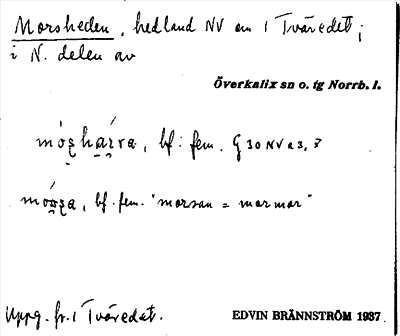 Morsheden, hedland NV om 1 Tväredet;
i N. delen av
Överkalix sn o. tg Norrb. l.
bf. fem. G 30 NV a 3,
bf. fem. "morsan = mormor"
Uppg. fr. 1 Tväredet.
EDVIN BRÄNNSTRÖM 1937